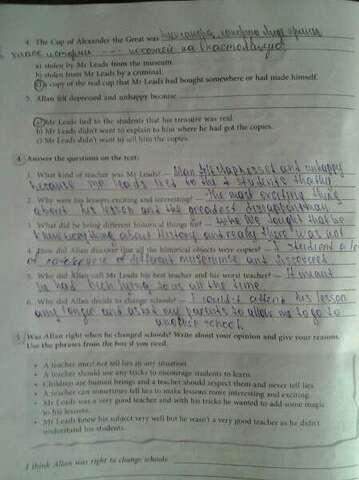 4. The Cup of Alexander the Great was
a) stolen by Mr Leads from the museum.
b) stolen from Mr Leads by a criminal.
c) a copy of the real cup that Mr Leads had bought somewhere or had made himself.
5. Allan felt depressed and unhappy because
a) Mr Leads lied to the students that his treasure was real.
b) Mr Leads didn't want to explain to him where he had got the copies.
c) Mr Leads didn't want to sell him the copies.
4 Answer the questions on the text:
1. What kind of teacher was Mr Leads? – and unhappy
because mr leads lied to the students that
2. Why were his lessons exciting and interesting? – The most exciting thing
about his lesson and the greatest disappointment
3. What did he bring different historical things for? – that he
really there was not
4. How did Allan discover that all the historical objects were copies? – I
of different museums and discovered
5. Why did Allan call Mr Leads his best teacher and his worst teacher? – It meant
he had been lying to us all the time
6. Why did Allan decide to change schools? – I couldn't attend his lesson
any longer and asked my parents to allow me to go to
another school
5 Was Allan right when he changed schools? Write about your opinion and give your reasons.
Use the phrases from the box if you need.
• A teacher must not tell lies in any situation.
• A teacher should use any tricks to encourage students to learn.
• Children are human beings and a teacher should respect them and never tell lies.
• A teacher can sometimes tell lies to make lessons more interesting and exciting.
• Mr Leads was a very good teacher and with his tricks he wanted to add some magic
to his lessons.
• Mr Leads knew his subject very well but he wasn't a very good teacher as he didn't
understand his students.
I think Allan was right to change schools